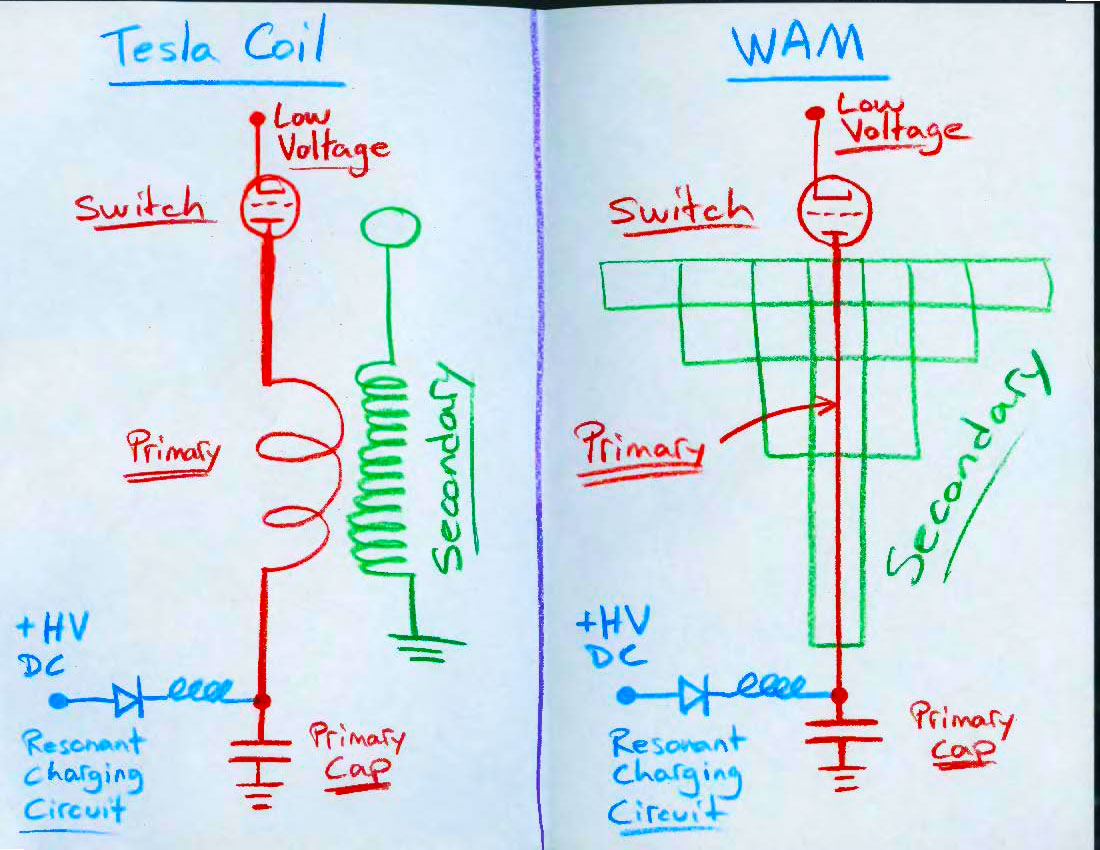 Tesla Coil
Low
Voltage
Switch
Primary
Secondary
+HV
DC
Resonant
Charging
Circuit
Primary
Cap
WAM
Low
Voltage
Switch
Primary
Secondary
+HV
DC
Resonant
Charging
Circuit
Primary
Cap